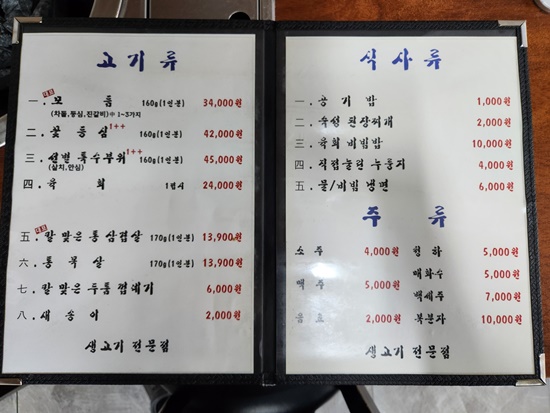 고기류
대표
一. 모 듬 160g(1인분) 34,000원
(차돌,등심,진갈비)中 1~3가지
二. 꽃 등 심 1++ 160g(1인분) 42,000원
三. 선별 특수부위 1++ 160g(1인분) 45,000원
(살치,안심)
四. 육 회 1접시 24,000원
대표
五. 칼 맞은 통 삼겹살 170g(1인분) 13,900원
六. 통 목 살 170g(1인분) 13,900원
七. 칼 맞은 두툼 껍데기 6,000원
八. 새 송 이 2,000원
생고기 전문점
식사류
一. 공 기 밥 1,000원
二. 숙성 된장찌개 2,000원
三. 육회 비빔밥 10,000원
四. 직접눌린 누룽지 4,000원
五. 물/비빔 냉면 6,000원
주 류
소 주 4,000원 청 하 5,000원
매화수 5,000원
맥주 5,000원
백세주 7,000원
음료 2,000원 복분자 10,000원
생고기 전문점